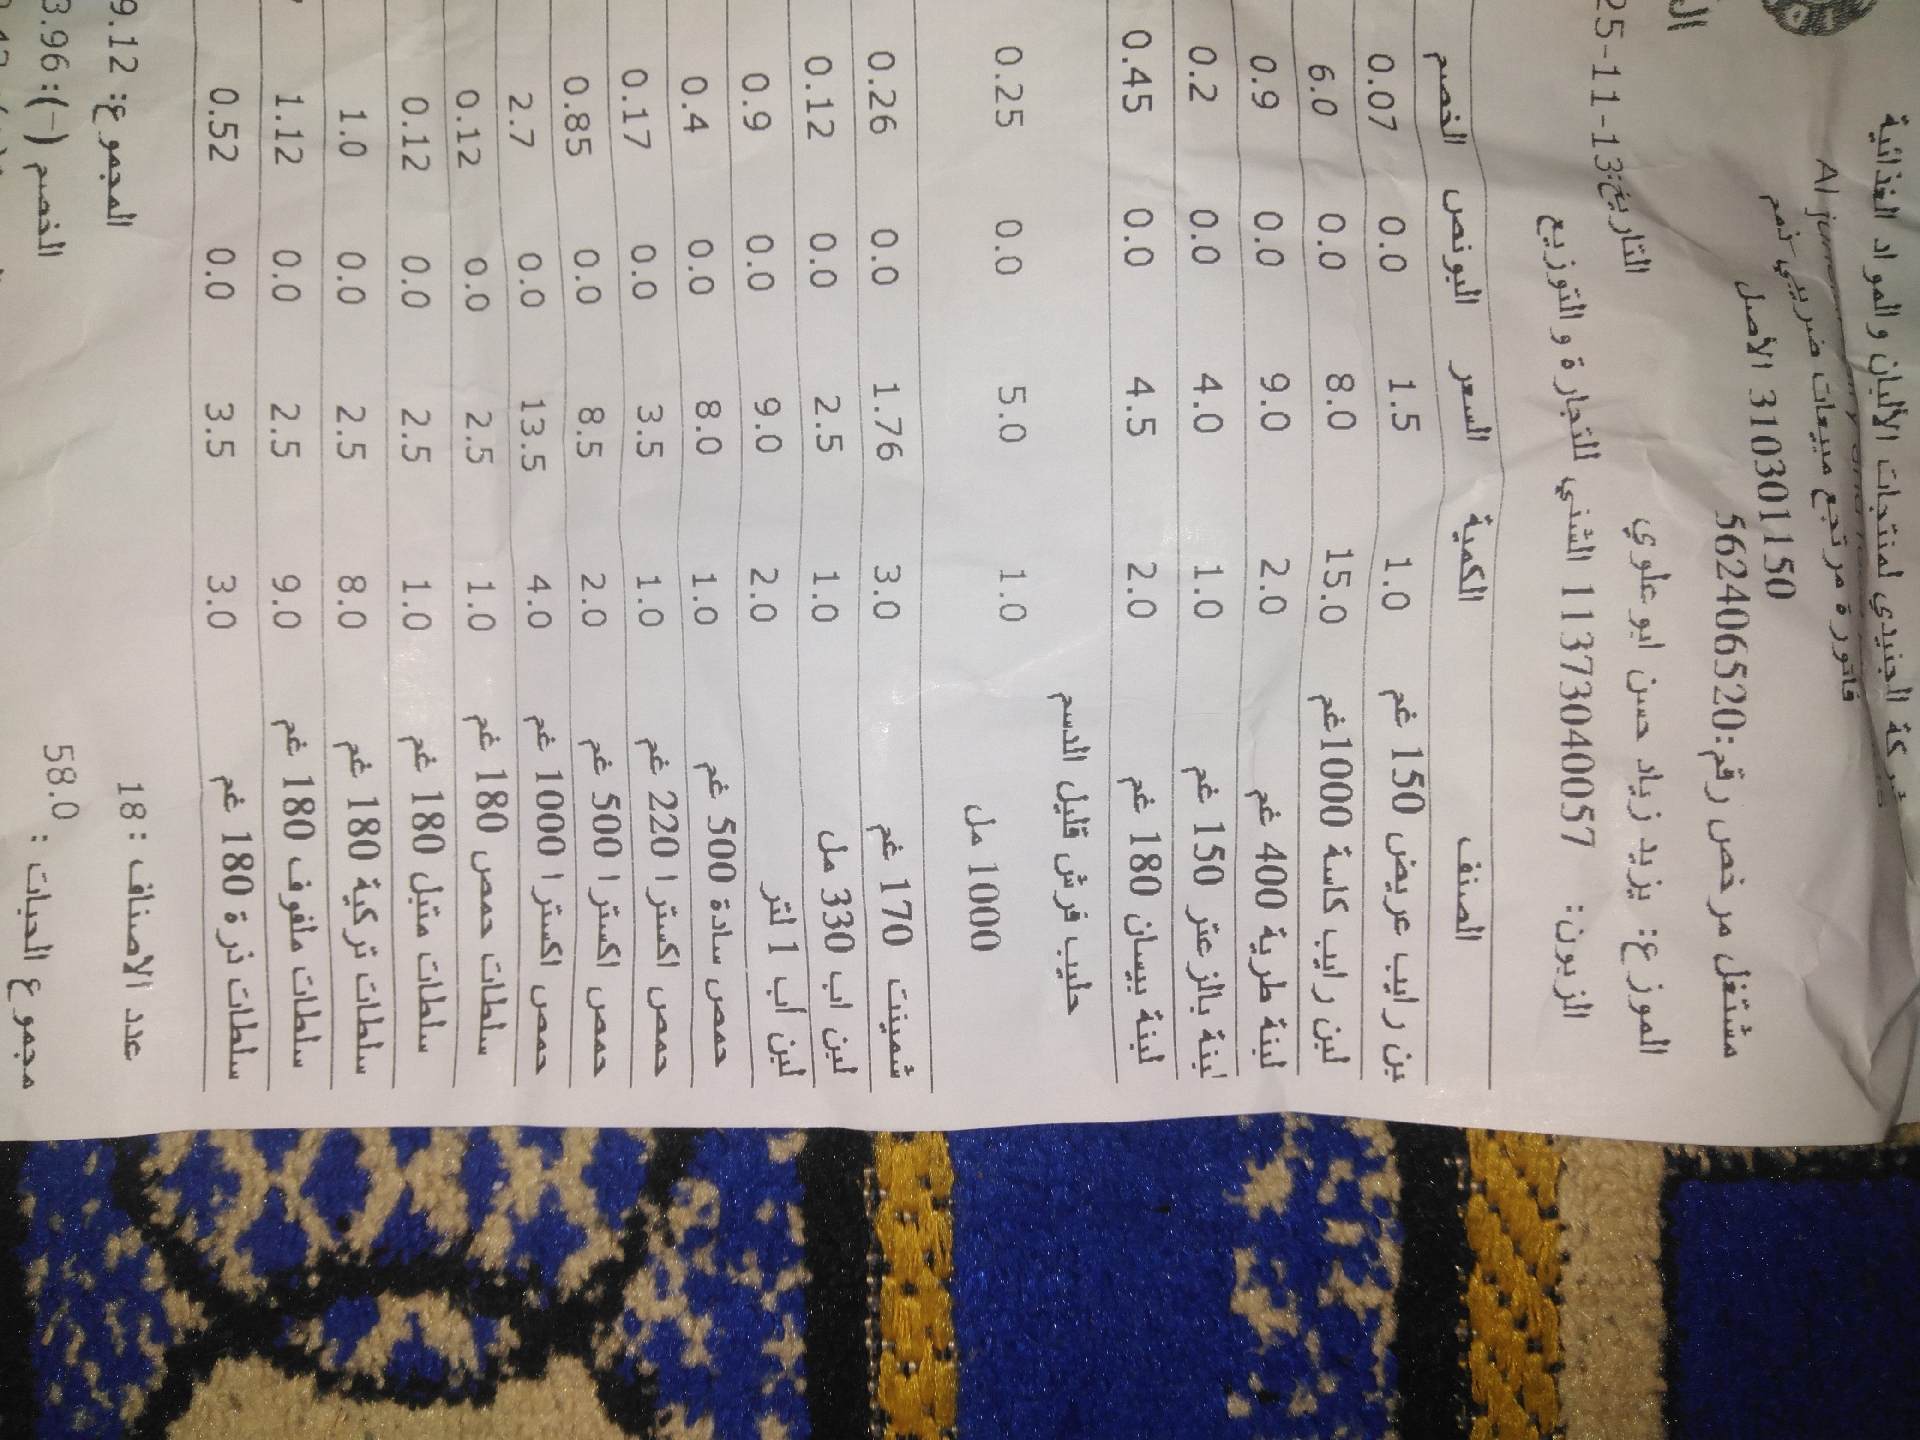 شركة الجنيدي لمنتجات الألبان والمواد الغذائية
فاتورة مرتجع مبيعات ضريبي نهم
310301150 الأصل
مشتغل مرخص رقم:562406520
الموزع: يزيد زياد حسن ابو علوي التاريخ:13-11-25
الزبون: 11373040057 الشني للتجارة و التوزيع
الصنف الكمية السعر البونص الخصم
بن رايب عريض 150 غم 1.0 1.5 0.0 0.07
لبن رايب كاسة 1000غم 15.0 8.0 0.0 6.0
لبنة طرية 400 غم 2.0 9.0 0.0 0.9
لبنة بالزعتر 150 غم 1.0 4.0 0.0 0.2
لبنة بيسان 180 غم 2.0 4.5 0.0 0.45
حليب فرش قليل الدسم
1000 مل 1.0 5.0 0.0 0.25
شمينت 170 غم 3.0 1.76 0.0 0.26
لبن اب 330 مل 1.0 2.5 0.0 0.12
لبن أب 1 لتر 2.0 9.0 0.0 0.9
حمص سادة 500 غم 1.0 8.0 0.0 0.4
حمص اكسترا 220 غم 1.0 3.5 0.0 0.17
حمص اكسترا 500 غم 2.0 8.5 0.0 0.85
حمص اكسترا 1000 غم 4.0 13.5 0.0 2.7
سلطات حمص 180 غم 1.0 2.5 0.0 0.12
سلطات متبل 180 غم 1.0 2.5 0.0 0.12
سلطات تركية 180 غم 8.0 2.5 0.0 1.0
سلطات ملفوف 180 غم 9.0 2.5 0.0 1.12
سلطات ذرة 180 غم 3.0 3.5 0.0 0.52
عدد الاصناف :18 المجموع: 9.12
مجموع الحبات : 58.0 الخصم (-): 3.96